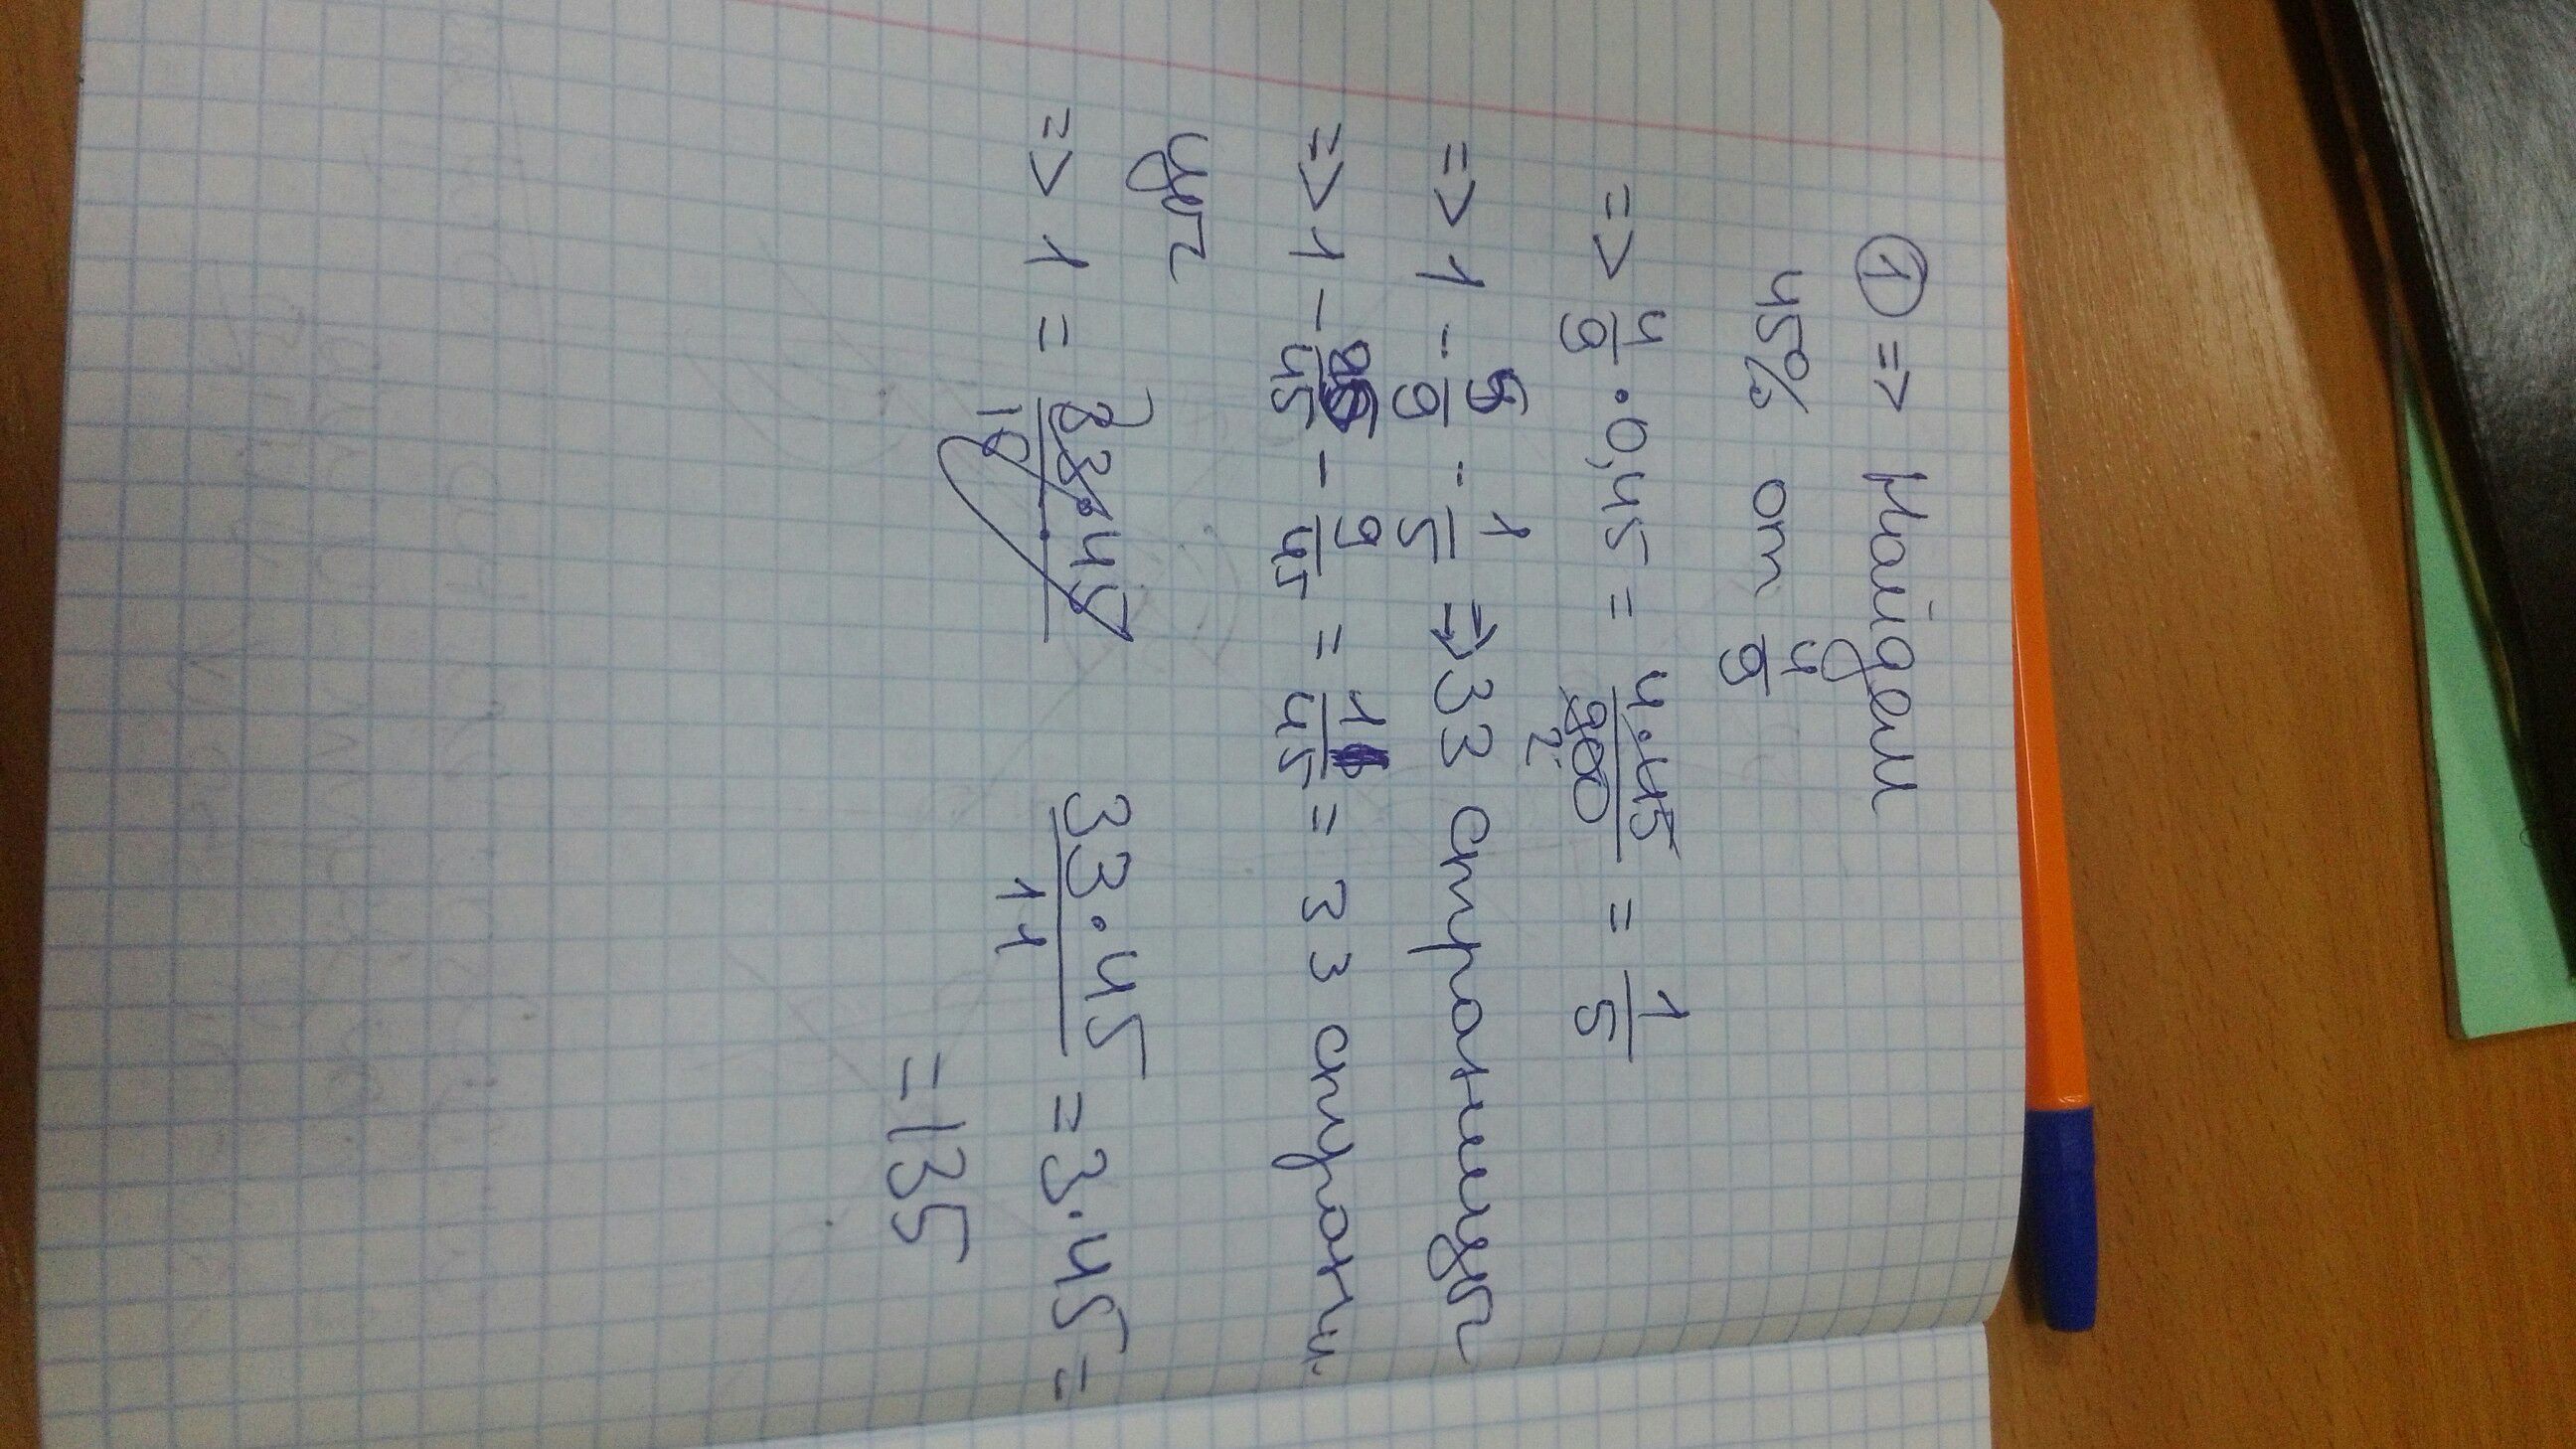 ① => Найдем
45% от 4/9
=> 4/9 · 0,45 = 4·45/900 = 1/5
=> 1 - 5/9 - 1/5 => 33 страницы
=> 1 - 25/45 - 9/45 = 11/45 = 33 страни
цы
=> 1 = 33·45/11 = 3·45 =
= 135